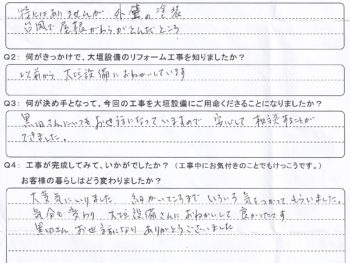 特にはありませんが 外壁の塗装
台風で屋根がわらがとんだところ
Q2: 何がきっかけで、大垣設備のリフォーム工事を知りましたか?
以前から 大垣設備におねがいしています
Q3: 何が決め手となって、今回の工事を大垣設備にご用命くださることになりましたか?
黒田さんにいつもお世話になっていますので 安心して 相談することが
できました。
Q4: 工事が完成してみて、いかがでしたか? (工事中にお気付きのことでもけっこうです。)
お客様の暮らしはどう変わりましたか?
大変気にいりました 細かいところまで いろいろ 気をつかってもらいました。
気分も変わり 大垣設備さんにおねがいして 良かったです
黒田さん お世話になり ありがとうございました